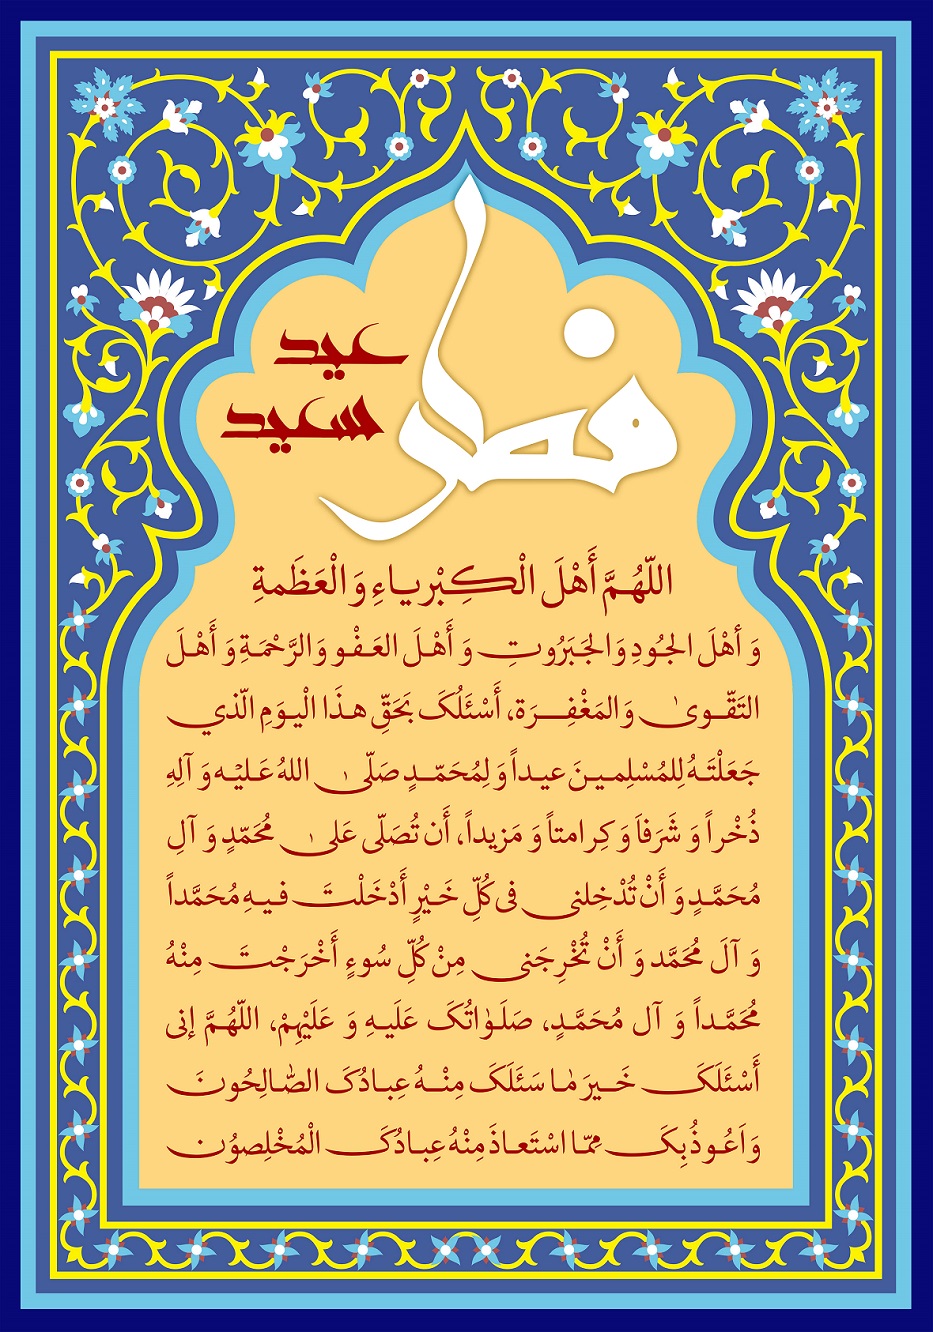 عید
سعید
فطر
اللّهُمَّ أَهْلَ الْكِبْرِیاءِ وَ الْعَظَمةِ
وَ أَهْلَ الجُودِ وَ الجَبَرُوتِ وَ أَهْلَ العَفْوِ وَ الرَّحْمَةِ وَ أَهْلَ
التَقّوىٰ وَ المَغْفِرَة، أَسْئَلُکَ بَحَقِّ هذَا الْیومِ الّذي
جَعَلْتَهُ لِلمُسْلِمینَ عیداً وَ لِمُحَمّدٍ صَلّى اللهُ عَلیْه وَ آلِهِ
ذُخْراً وَ شَرَفاَ وَ کِرامتاً وَ مَزیداً، أَن تُصَلّی عَلیٰ مُحَمّدٍ وَ آلِ
مُحَمَّدٍ وَ أَنْ تُدْخِلنی فی کُلِّ خَیْرٍ أَدْخَلْتَ فیهِ مُحَمَّداً
وَ آلَ مُحَمَّد وَ أَنْ تُخْرِجَنی مِنْ کُلِّ سُوءٍ أَخْرَجْتَ مِنْهُ
مُحَمَّداً وَ آل مُحَمَّدٍ، صَلَوٰاتُکَ عَلَیهِ وَ عَلَیْهِمْ، اللّهُمَّ إنی
أَسْئَلَکَ خَیرَ مٰا سَئَلَکَ مِنْهُ عِبادُکَ الصّالِحُونَ
وَ اَعُوذُ بِکَ مِمّا اسْتَعاذَ مِنْهُ عِبادُکَ الْمُخْلِصوُن